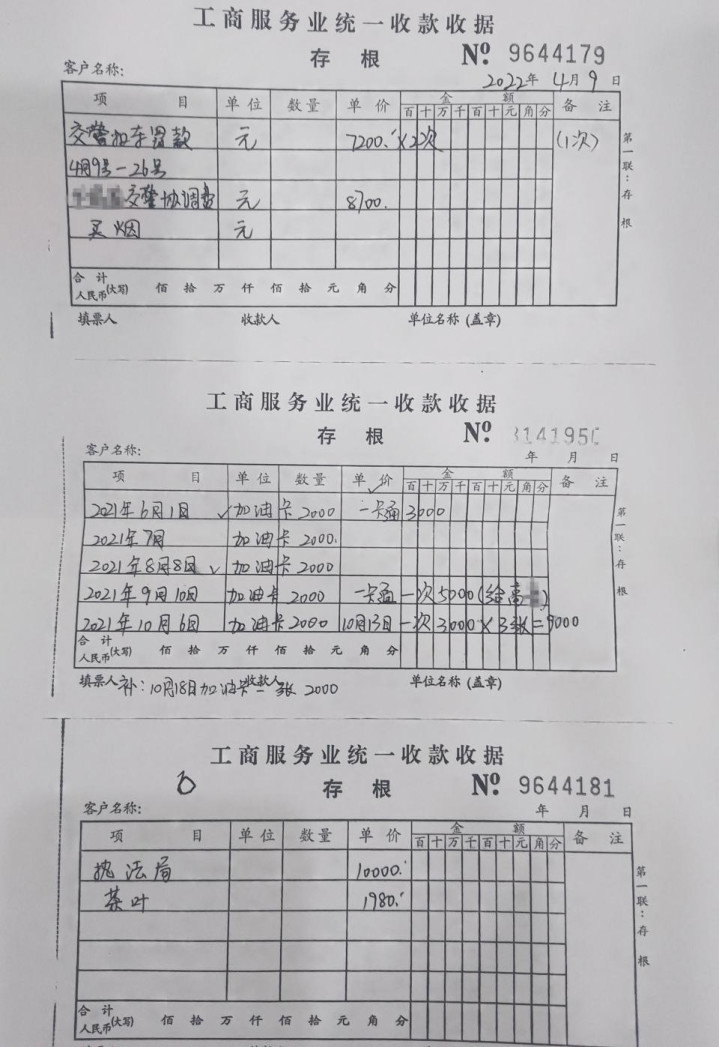 工商服务业统一收款收据
存 根 Nº 9644179
客户名称: 2022年 4月 9日
项 目 单位 数量 单价 金 额 备 注
百 十 万 千 百 十 元 角 分
交警扣车罚款 元 7200. ×2次 (1次)
4月9号-26号
交警协调费 元 8700.
买烟 元
合计 人民币(大写) 佰 拾 万 仟 佰 拾 元 角 分
填票人 收款人 单位名称(盖章)
第一联:存根
工商服务业统一收款收据
存 根 Nº 3141950
客户名称: 年 月 日
项 目 单位 数量 单价 金 额 备 注
百 十 万 千 百 十 元 角 分
2021年6月1日 ✓加油卡 2000 一卡通 3000
2021年7月 加油卡 2000.
2021年8月8日 ✓ 加油卡 2000
2021年9月10日 加油卡 2000 一卡通 一次5000(给高)
2021年10月6日 加油卡 2000 10月13日一次3000×3张=9000
合计 人民币(大写) 佰 拾 万 仟 佰 拾 元 角 分
填票人 收款人 单位名称(盖章)
补:10月18日加油卡一张 2000
第一联:存根
工商服务业统一收款收据
存 根 Nº 9644181
客户名称: 年 月 日
项 目 单位 数量 单价 金 额 备 注
百 十 万 千 百 十 元 角 分
执法局 10000.
茶叶 1980.
合计 人民币(大写) 佰 拾 万 仟 佰 拾 元 角 分
第一联:存根